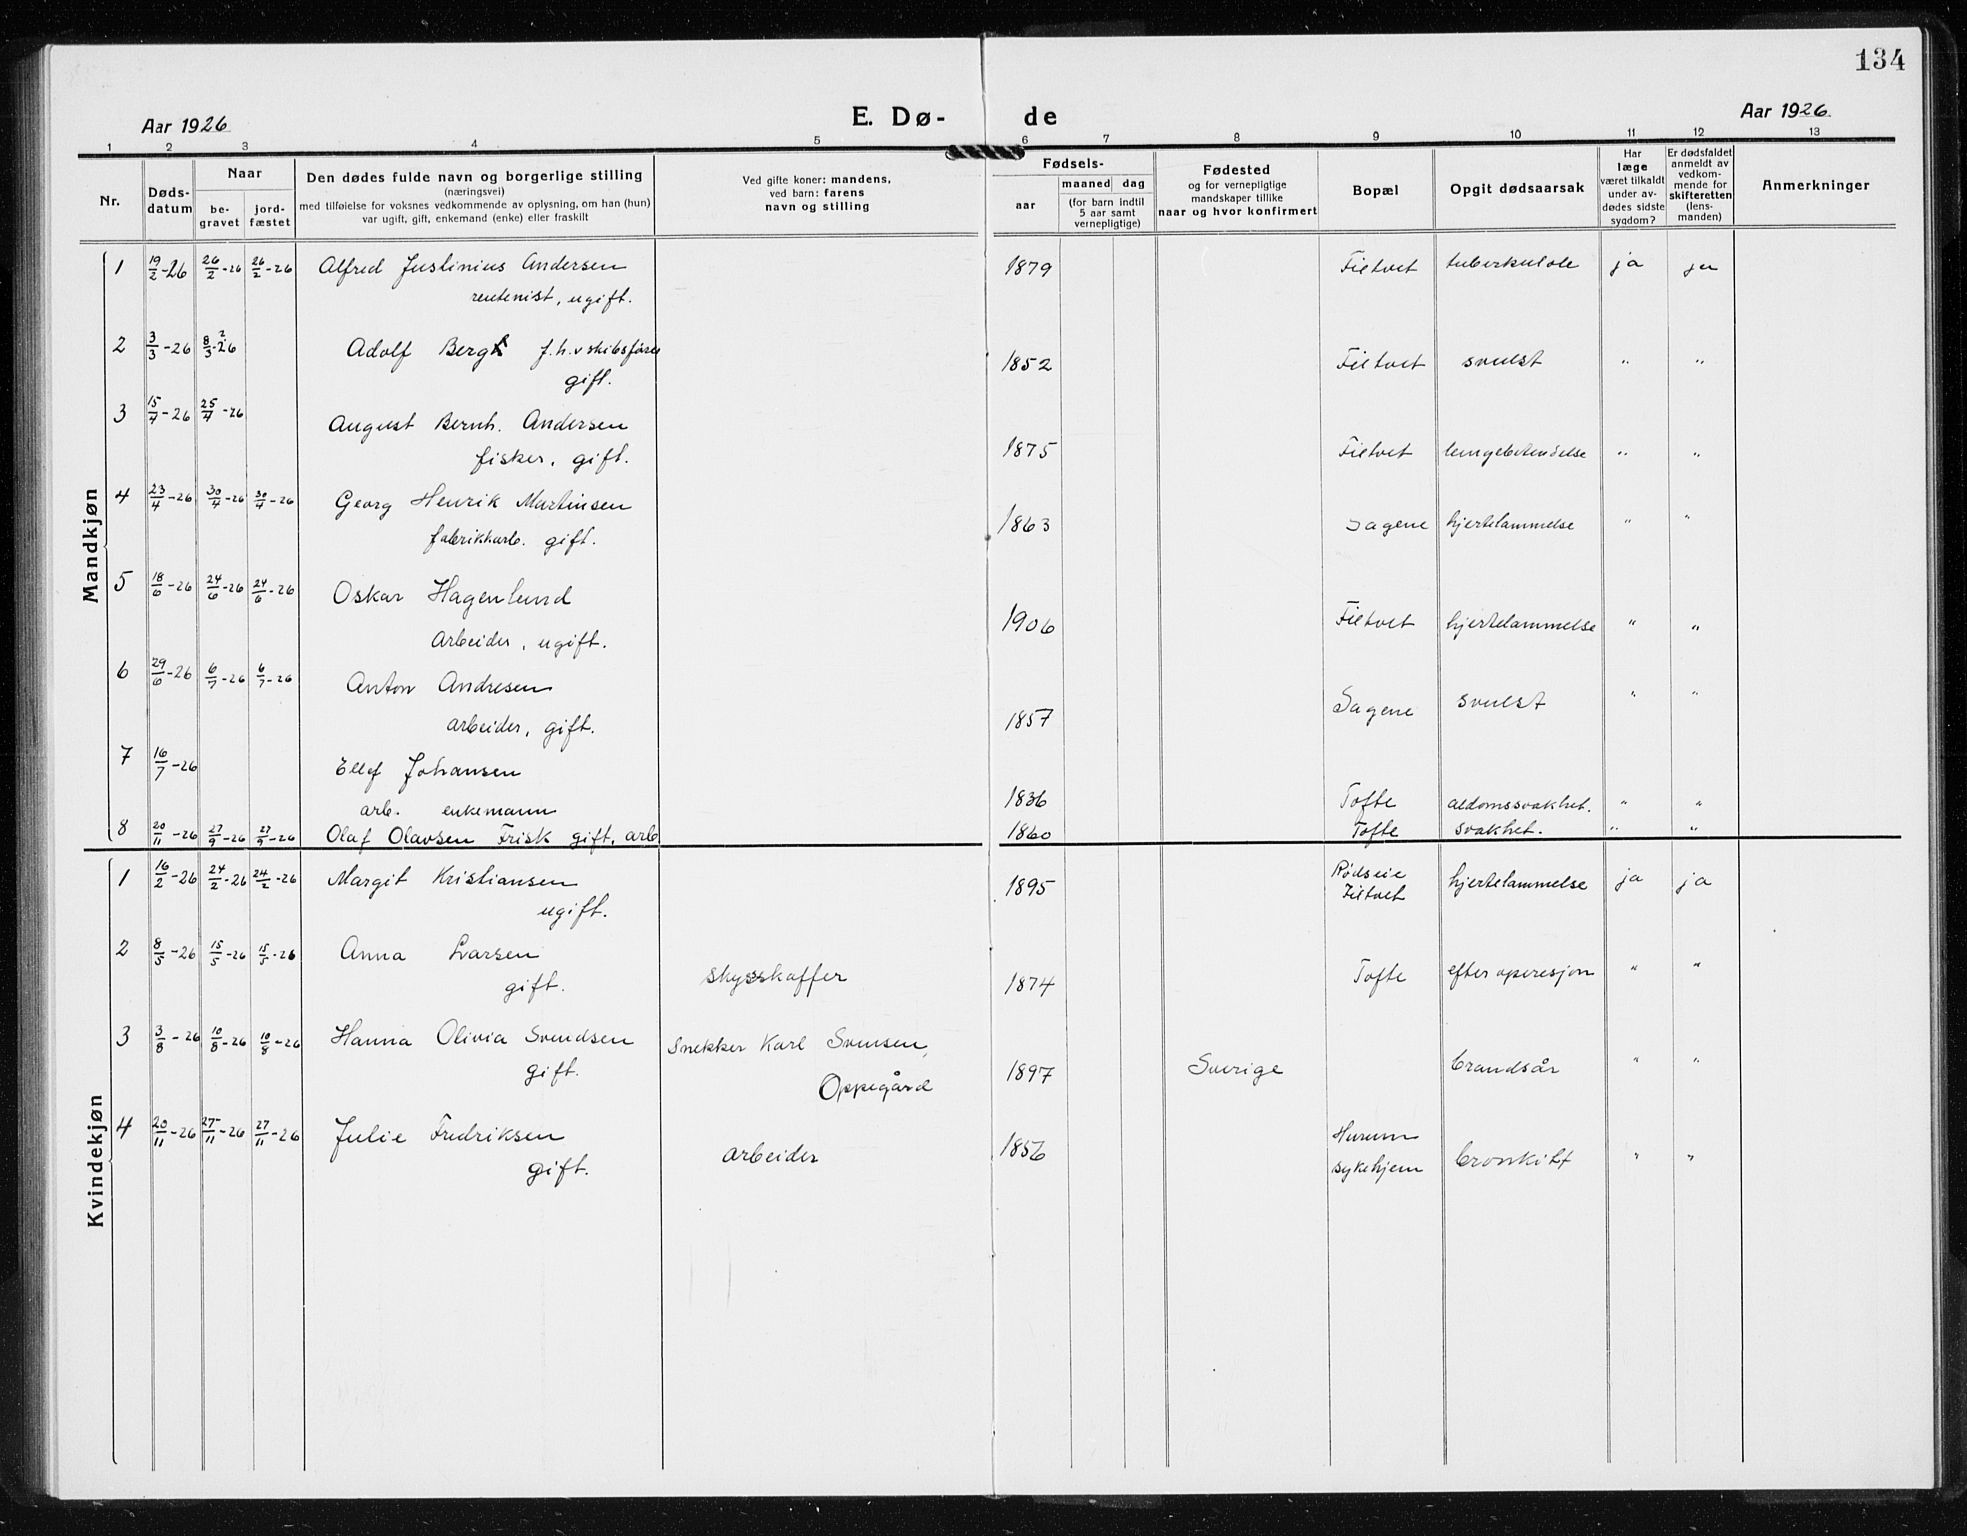 134
Aar 1926
E. Dø-
de
Aar 1926.
1 2 3 4 5 6 7 8 9 10 11 12 13
Nr.
Døds-
datum
Naar
be-
gravet
jord-
fæstet
Den dødes fulde navn og borgerlige stilling
(næringsvei)
med tilføielse for voksnes vedkommende av oplysning, om han (hun)
var ugift, gift, enkemand (enke) eller fraskilt
Ved gifte koner: mandens,
ved barn: farens
navn og stilling
Fødsels-
aar
maaned dag
(for barn indtil
5 aar samt
vernepligtige)
Fødested
og for vernepligtige
mandskaper tillike
naar og hvor konfirmert
Bopæl
Opgit dødsaarsak
Har
læge
været tilkaldt
under av-
dødes sidste
sygdom?
Er dødsfaldet
anmeldt av
vedkom-
mende for
skifteretten
(lens-
manden)
Anmerkninger
Mandkjøn
1 19/2-26 26/2-26 26/2-26 Alfred Justinius Andersen 1879 Filtvet tuberkulole ja ja
rentenist, ugift.
2 3/3-26 8/3-26 Adolf Berg f.h.v skibsfører 1852 Filtvet svulst " "
gift.
3 15/4-26 25/4-26 August Bernh. Andersen
fisker, gift. 1875 Filtvet lungebetendelse " "
4 23/4-26 30/4-26 30/4-26 Georg Henrik Martinsen
fabrikkarb. gift. 1863 Sagene hjertelammelse " "
5 18/6-26 24/6-26 24/6-26 Oskar Hagenlund
Arbeider, ugift. 1906 Filtvet hjertelammelse " "
6 29/6-26 6/7-26 6/7-26 Anton Andresen
arbeider, gift. 1857 Sagene svulst " "
7 16/7-26 Ellef Johansen
arb. enkemann 1836 Tofte aldomssvakhet. " "
8 20/11-26 27/9-26 27/9-26 Olaf Olavsen Frisk gift, arb 1860 Tofte svakhet. " "
Kvindekjøn
1 16/2-26 24/2-26 24/2-26 Margit Kristiansen 1895 Rødseie hjertelammelse ja ja
ugift. Filtvet
2 8/5-26 15/5-26 15/5-26 Anna Larsen
gift. skysskaffer 1874 Tofte efter operesjon " "
3 3/8-26 10/8-26 10/8-26 Hanna Olivia Svendsen Snekker Karl Svensen,
gift. Oppegård 1897 Sverige brandsår " "
4 20/11-26 27/11-26 27/11-26 Julie Fredriksen Hurum
gift. arbeider 1856 sykehjem bronkitt " "